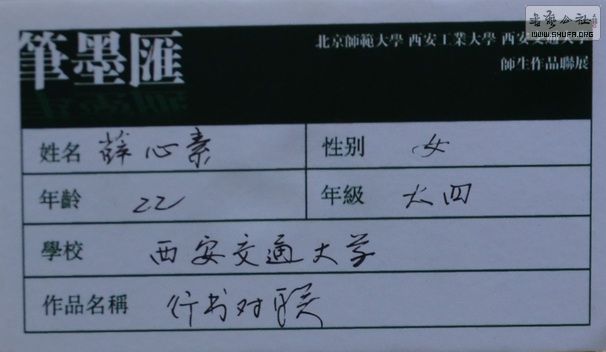 書法公社
WWW.SHUFA.ORG
筆墨匯
北京師範大學 西安工業大學 西安交通大學
師生作品聯展
姓名 薛心素 性别 女
年齡 22 年級 大四
學校 西安交通大学
作品名稱 行书对联